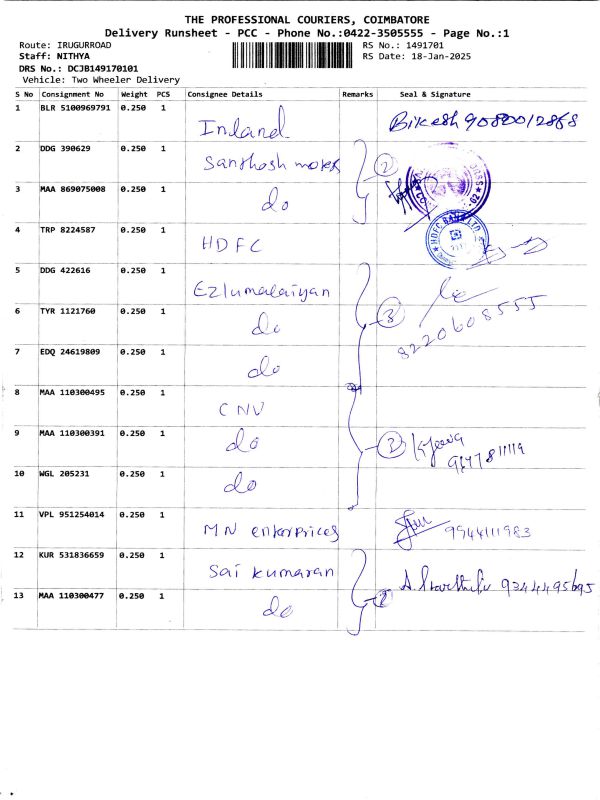 THE PROFESSIONAL COURIERS, COIMBATORE
Delivery Runsheet - PCC - Phone No.:0422-3505555 - Page No.:1
Route: IRUGURROAD RS No.: 1491701
Staff: NITHYA RS Date: 18-Jan-2025
DRS No.: DCJB149170101
Vehicle: Two Wheeler Delivery
S No Consignment No Weight PCS Consignee Details Remarks Seal & Signature
1 BLR 5100969791 0.250 1 Inland Bikesh 9080012868
2 DDG 390629 0.250 1 Santhosh motors 2
3 MAA 869075008 0.250 1 do
4 TRP 8224587 0.250 1 HDFC HDFC BANK LTD
5 DDG 422616 0.250 1 Ezlumalaiyan
6 TYR 1121760 0.250 1 do 3 8220608555
7 EDQ 24619809 0.250 1 do
8 MAA 110300495 0.250 1 CNV
9 MAA 110300391 0.250 1 do 3
10 WGL 205231 0.250 1 do
11 VPL 951254014 0.250 1 MN enterprices 9944111983
12 KUR 531836659 0.250 1 Sai kumaran 9344495695
13 MAA 110300477 0.250 1 do 2